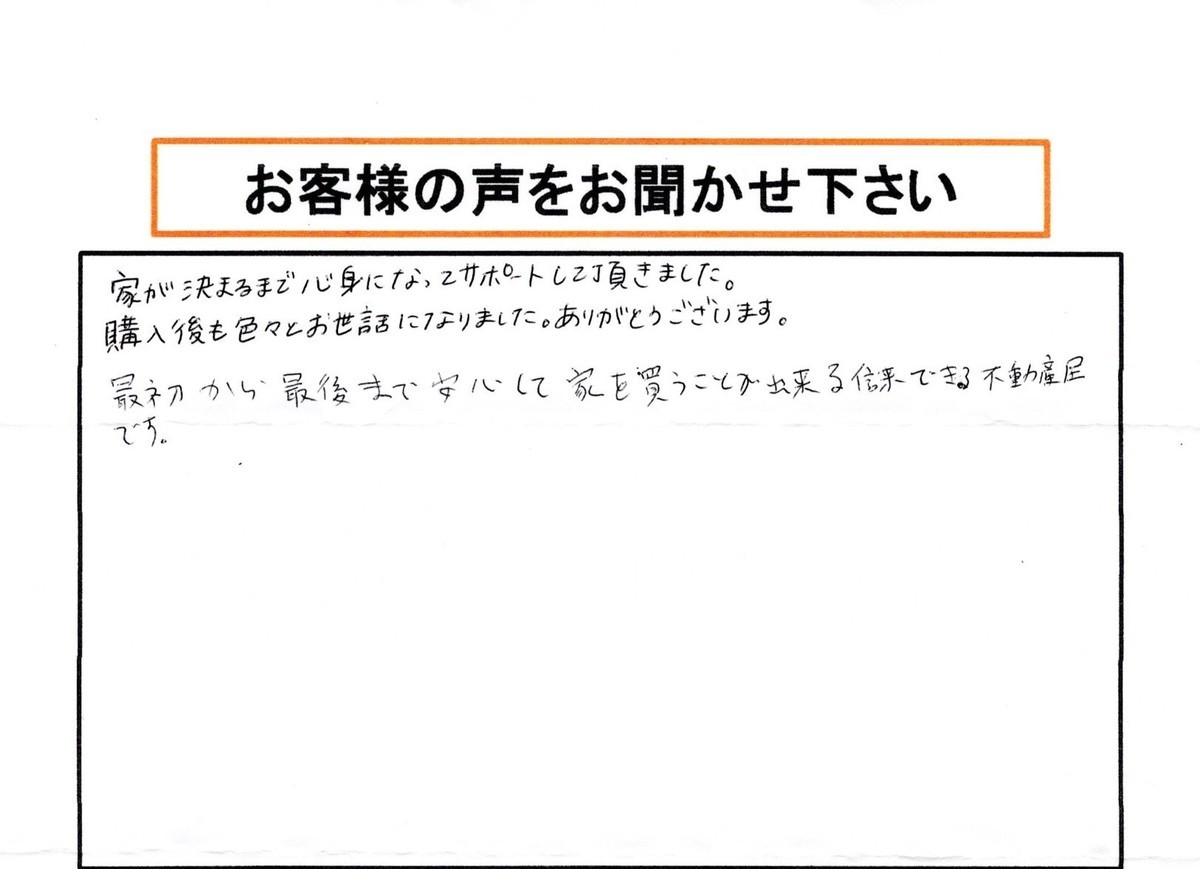 お客様の声をお聞かせ下さい
家が決まるまで心身になってサポートして頂きました。
購入後も色々とお世話になりました。ありがとうございます。
最初から最後まで安心して家を買うことが出来る信来できる不動産屋
です。